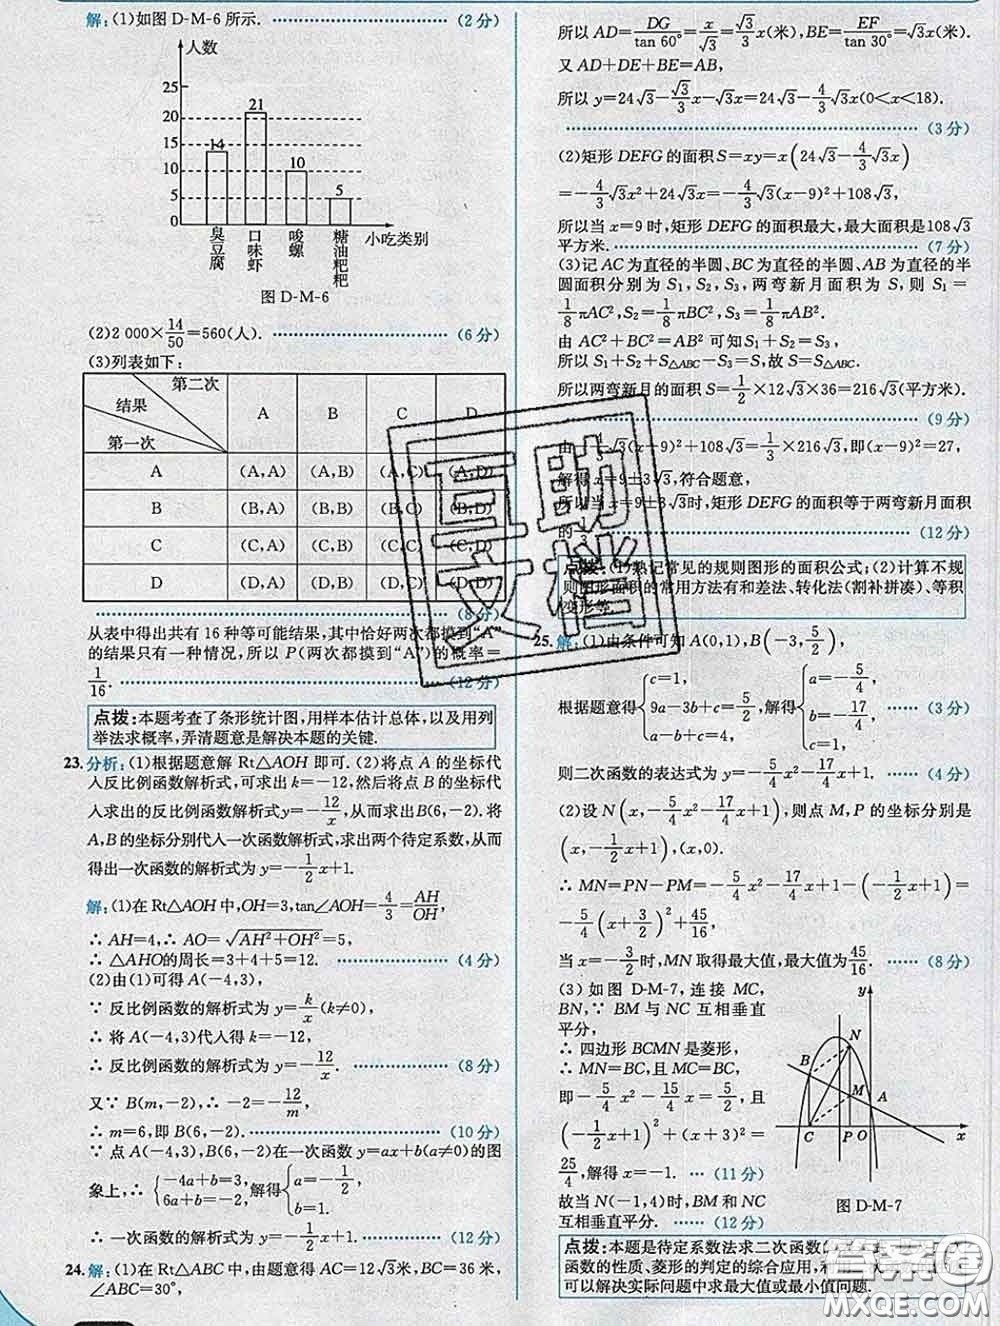 解:(1)如图 D-M-6 所示. (2分)
人数
25
20
15
10
5
0
14
21
10
5
臭豆腐
口味虾
唆螺
糖油粑粑
小吃类别
图 D-M-6
(2)2 000×14/50=560(人). (6分)
(3)列表如下:
第二次
结果
第一次
A B C D
A (A,A) (A,B) (A,C) (A,D)
B (B,A) (B,B) (B,C) (B,D)
C (C,A) (C,B) (C,C) (C,D)
D (D,A) (D,B) (D,C) (D,D)
(8分)
从表中得出共有 16 种等可能结果,其中恰好两次都摸到“A”
的结果只有一种情况,所以 P(两次都摸到“A”)的概率=
1/16. (12分)
点拨:本题考查了条形统计图,用样本估计总体,以及用列
举法求概率,弄清题意是解决本题的关键.
23.分析:(1)根据题意解 Rt△AOH 即可.(2)将点 A 的坐标代
入反比例函数解析式,可求出 k=-12,然后将点 B 的坐标
代入求出的反比例函数解析式y=-12/x,从而求出B(6,-2).将
A,B的坐标分别代入一次函数解析式,求出两个待定系数,从而
得出一次函数的解析式为 y=-1/2x+1.
解:(1)在 Rt△AOH 中,OH=3,tan∠AOH=4/3=AH/OH,
∴ AH=4,∴ AO=√(AH²+OH²)=5,
∴ △AHO的周长=3+4+5=12. (4分)
(2)由(1)可得 A(-4,3),
∵ 反比例函数的解析式为 y=k/x(k≠0),
∴ 将 A(-4,3)代入得 k=-12,
∴ 反比例函数的解析式为 y=-12/x. (8分)
又∵ B(m,-2),∴ -2=-12/m,
∴ m=6,即 B(6,-2). (10分)
∵ 点 A(-4,3),B(6,-2)在一次函数 y=ax+b(a≠0)的图
象上,∴ {-4a+b=3, 6a+b=-2, 解得{a=-1/2, b=1.
∴ 一次函数的解析式为 y=-1/2x+1. (12分)
24.解:(1)在 Rt△ABC 中,由题意得 AC=12√3米,BC=36 米,
∠ABC=30°,
所以 AD=DG/tan 60°=x/√3=√3/3x(米),BE=EF/tan 30°=√3x(米).
又 AD+DE+BE=AB,
所以 y=24√3-√3/3x-√3x=24√3-4/3√3x(0<x<18).
(3分)
(2)矩形 DEFG 的面积 S=xy=x(24√3-4/3√3x)
=-4/3√3x²+24√3x=-4/3√3(x-9)²+108√3,
所以当 x=9 时,矩形 DEFG 的面积最大,最大面积是108√3
平方米. (7分)
(3)记 AC为直径的半圆、BC为直径的半圆、AB为直径的半
圆面积分别为 S₁,S₂,S₃,两弯新月面积为 S,则 S₁=
1/8πAC²,S₂=1/8πBC²,S₃=1/8πAB².
由 AC²+BC²=AB² 可知 S₁+S₂=S₃,
所以 S₁+S₂+S△ABC-S₃=S△ABC.故 S=S△ABC.
所以两弯新月的面积 S=1/2×12√3×36=216√3(平方米).
(9分)
由-4/3√3(x-9)²+108√3=1/3×216√3,即(x-9)²=27,
解得 x=9±3√3,符合题意.
所以当 x=9±3√3时,矩形 DEFG 的面积等于两弯新月面积
的1/3. (12分)
点拨:(1)熟记常见的规则图形的面积公式;(2)计算不规
则图形面积的常用方法有和差法、转化法(割补拼凑)、等积
变形等.
25.解:(1)由条件可知 A(0,1),B(-3,5/2),
根据题意得{c=1, 9a-3b+c=5/2, a-b+c=4, 解得{a=-5/4, b=-17/4, c=1, (3分)
则二次函数的表达式为 y=-5/4x²-17/4x+1. (4分)
(2)设 N(x,-5/4x²-17/4x+1),则点 M,P 的坐标分别是
(x,-1/2x+1),(x,0).
∴ MN=PN-PM=-5/4x²-17/4x+1-(-1/2x+1)=
-5/4(x+3/2)²+45/16,
当 x=-3/2时,MN 取得最大值,最大值为45/16. (8分)
(3) 如图 D-M-7,连接 MC,
BN,∵ BM 与 NC 互相垂直
平分,
∴ 四边形 BCMN是菱形,
∴ MN=BC,且 MC=BC,
即-5/4x²-15/4x=5/2,且
(-1/2x+1)²+(x+3)²=
25/4,解得 x=-1. (11分)
故当 N(-1,4)时,BM 和 NC
互相垂直平分. (12分)
y
N
B
M
A
C
P
O
x
图 D-M-7
点拨:本题是待定系数法求二次函数
函数的性质、菱形的判定的综合应用,利用
可以解决实际问题中求最大值或最小值问题.
互助文档
答案卷
MXQE.COM